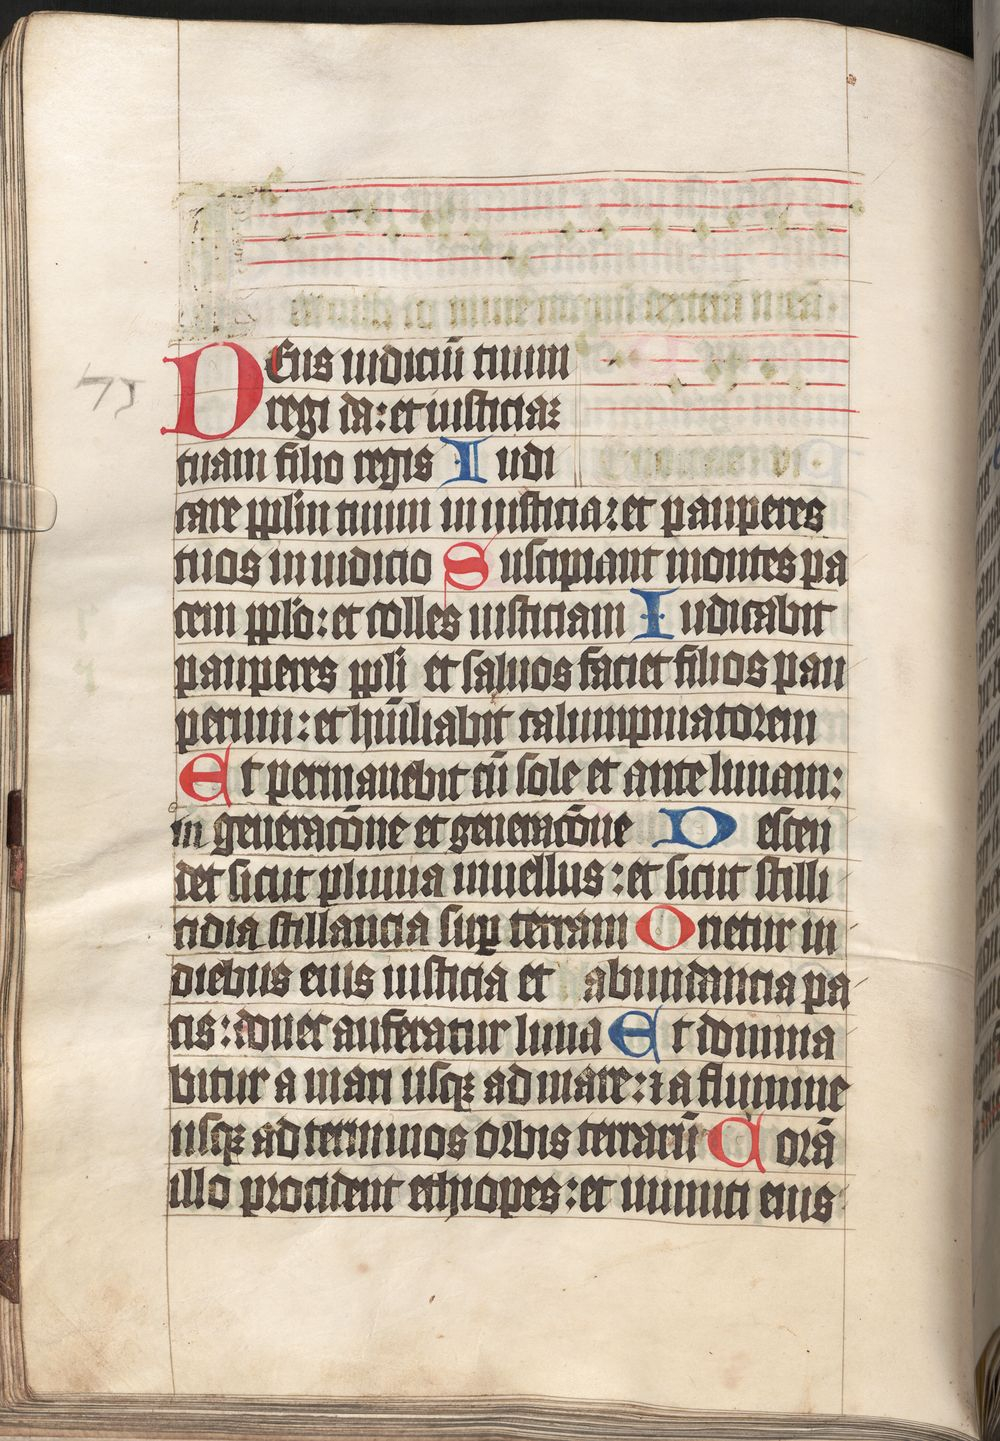 71
DEus iudiciū tuum
regi da: et iusticiaꝫ
tuam filio regis Iudi
care pplm tuum in iusticia: et pauperes
tuos in iudicio Suscipiant montes pa
cem pplo: et colles iusticiam Iudicabit
pauperes ppli et saluos faciet filios pau
perum: et hūiliabit calumpniatorem
Et permanebit cū sole et ante lunam:
in generacōne et generacōne Descen
det sicut pluuia inuellus: et sicut stilli
cidia stillancia suꝑ terram Orietur in
diebus eius iusticia et abundancia pa
cis: donec auferatur luna Et domina
bitur a mari usqꝫ ad mare: ⁊ a flumine
usqꝫ ad terminos orbis terrarū Corā
illo procident ethiopes: et inimici eius